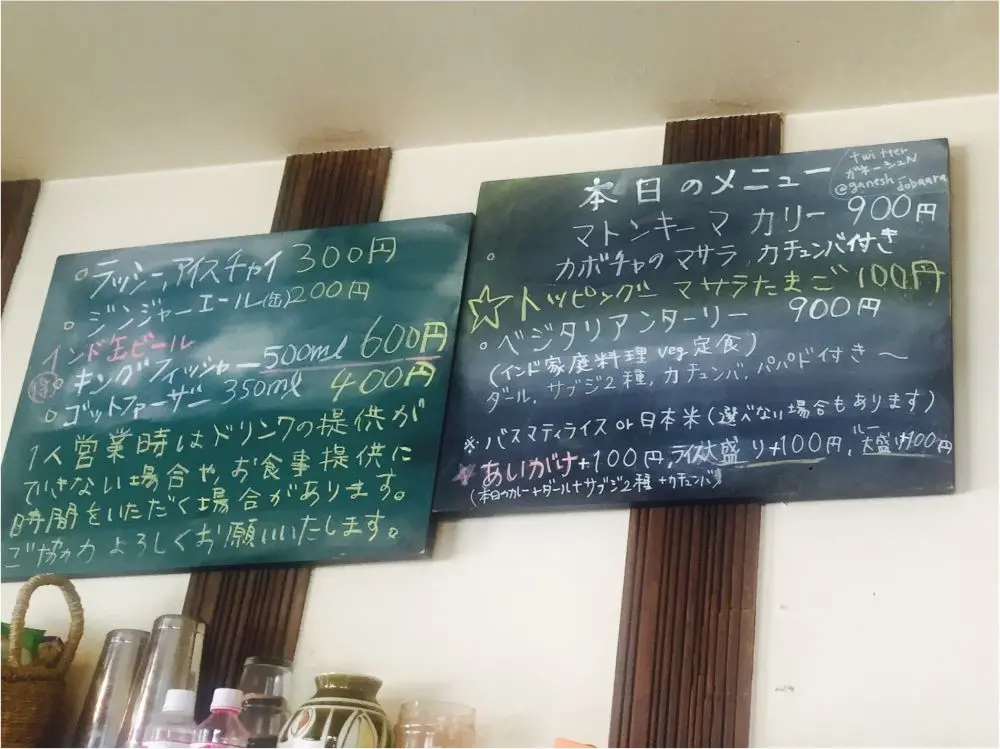 ・ラッシー,アイスチャイ 300円
・ジンジャーエール(缶)200円
インド缶ビール
得・キングフィッシャー500ml 600円
・ゴットファーザー 350ml 400円
1人営業時はドリンクの提供が
できない場合や、お食事提供に
時間をいただく場合があります。
ご協力よろしくお願いいたします。
twitter
ガネーシュN
@ganesh_dobaara
本日のメニュー
・マトンキーマ カリー 900円
カボチャのマサラ,カチュンバ付き
☆トッピング― マサラたまご 100円
・ベジタリアンターリー 900円
(インド家庭料理 veg定食)
ダール,サブジ2種,カチュンバ,パパド付き〜
※バスマティライス or 日本米(選べない場合もあります)
★あいがけ+100円,ライス大盛り+100円,ルー大盛り+100円
(本日のカレー+ダール+サブジ2種+カチュンバ)